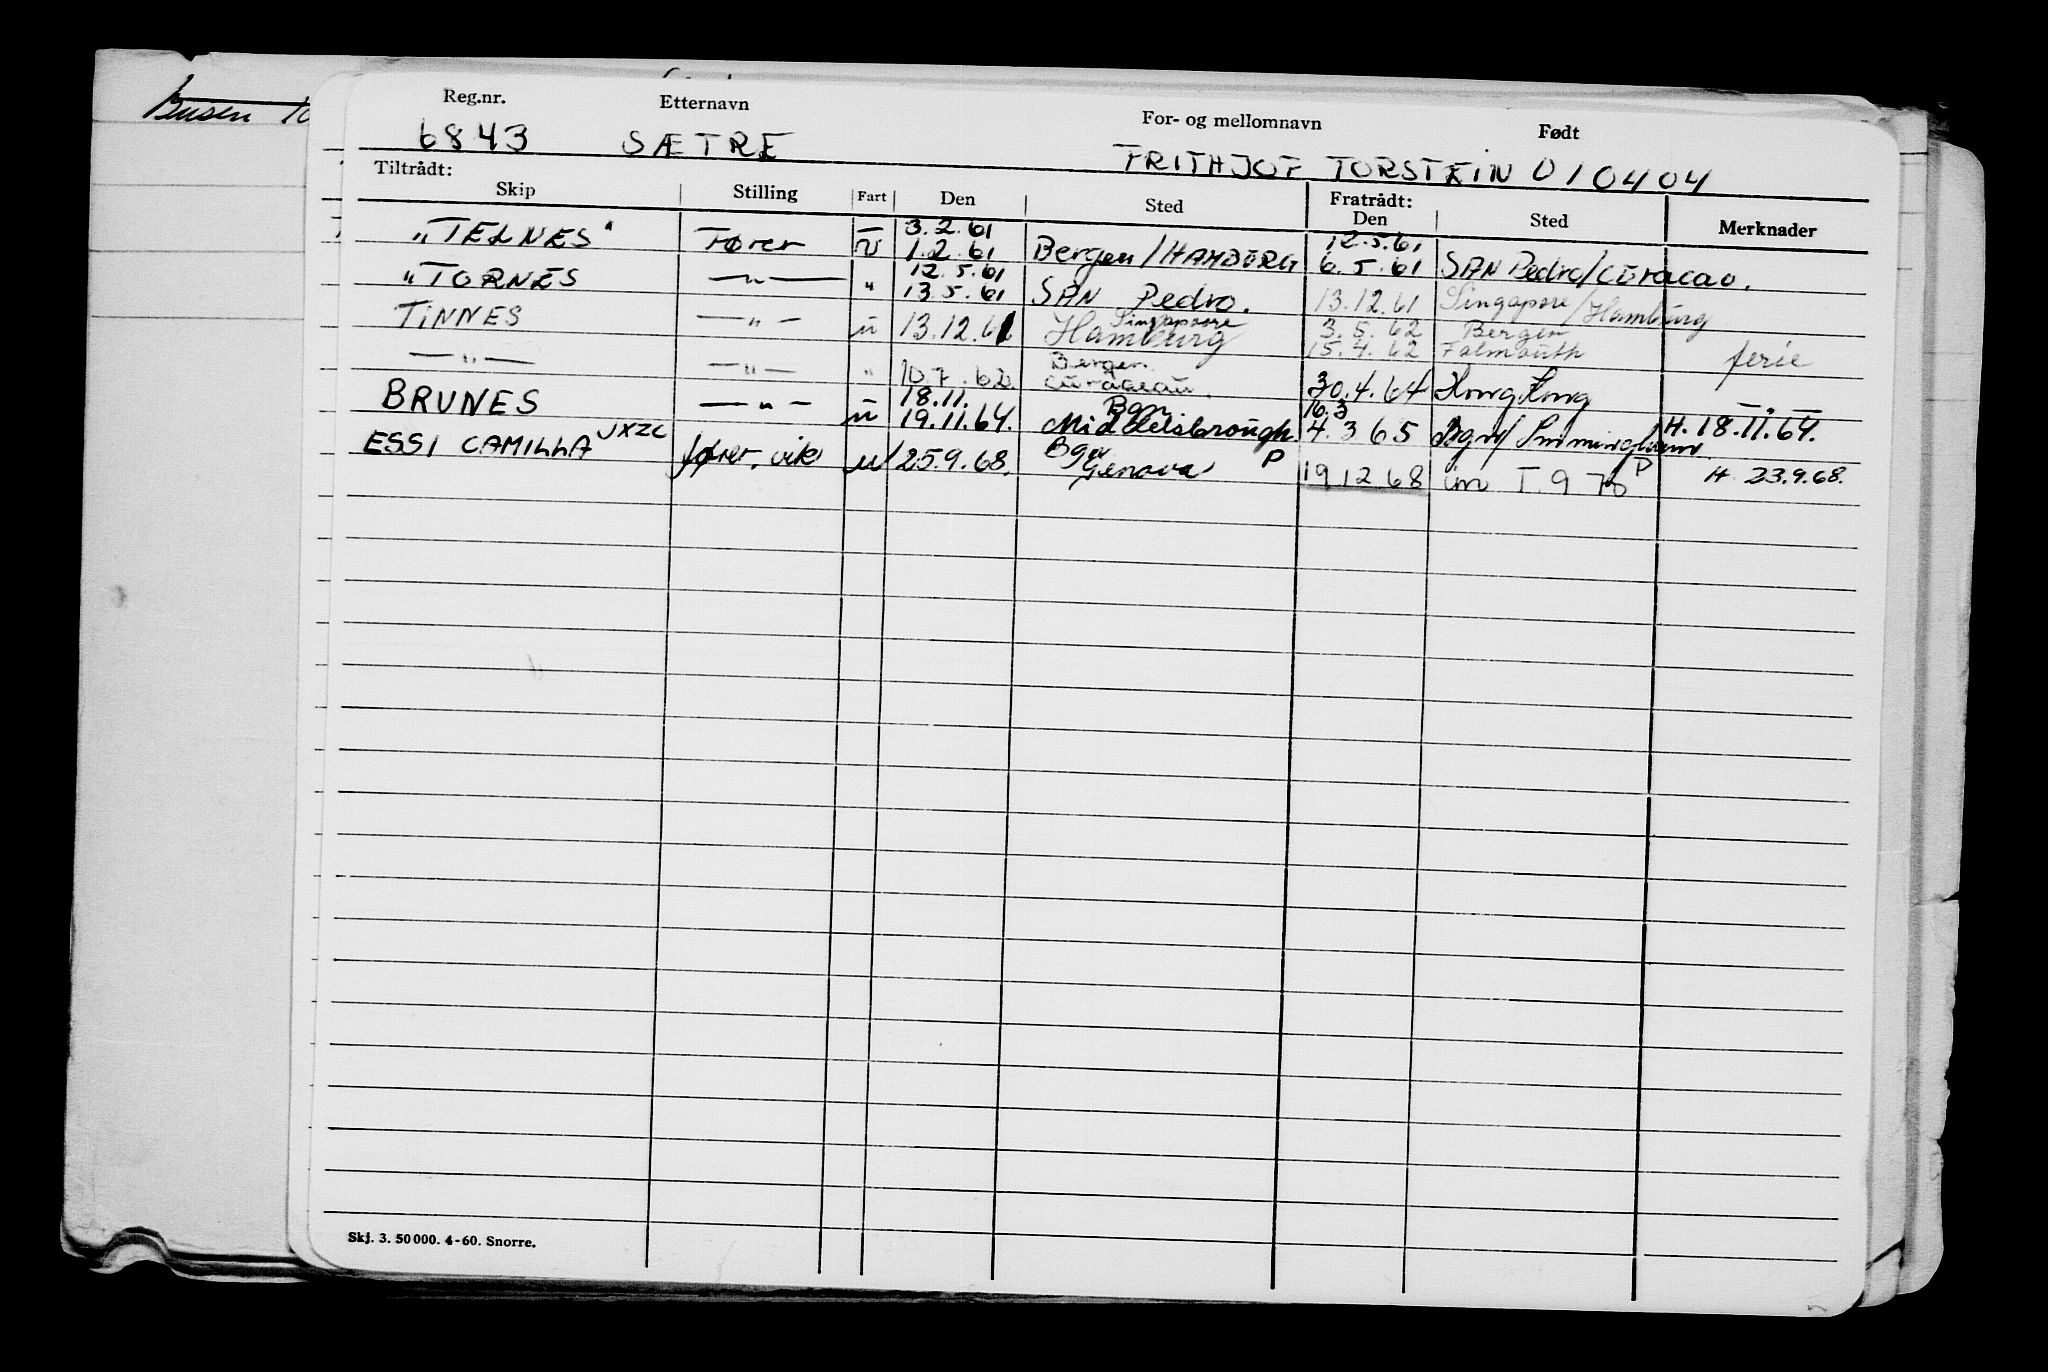 Reg.nr. Etternavn For- og mellomnavn Født
6843 SÆTRE FRITHJOF TORSTEIN 010404
Tiltrådt: Fratrådt:
Skip Stilling Fart Den Sted Den Sted Merknader
3.2.61 12.5.61
"TELNES" Fører U 1.2.61 Bergen/HAMBURG 6.5.61 SAN Pedro/CURACAO.
12.5.61
"TORNES —"— " 13.5.61 SAN Pedro. 13.12.61 Singapore/Hamburg
Singapore 3.5.62 Bergen
TINNES —"— u 13.12.61 Hamburg 15.4.62 Falmouth ferie
Bergen
—"— —"— " 10.7.62 Curacau 30.4.64 Hong Kong —"—
18.11. Bgn 16.3
BRUNES —"— u 19.11.64. Middelsbrough 4.3 65 Bgn/ H. 18.11.64.
ESSI CAMILLA JXZC fører. vik u 25.9.68. Bgn P
Genova 19 12 68 im T. 9 70 P H 23.9.68.
Skj. 3. 50 000. 4-60. Snorre.